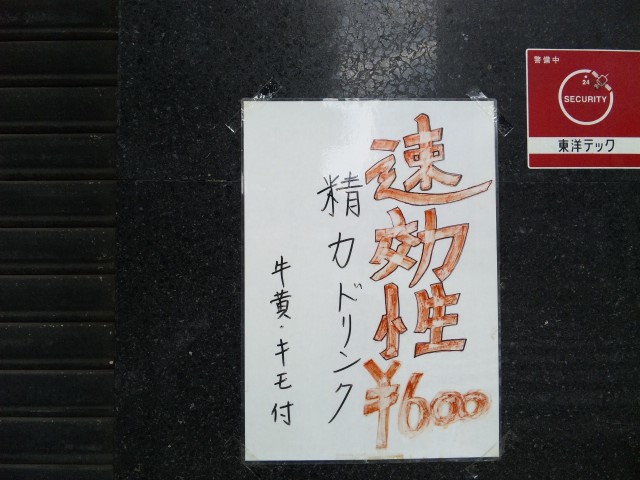 速効性
¥600
精力ドリンク
牛黄・キモ付
警備中
24
SECURITY
東洋テック